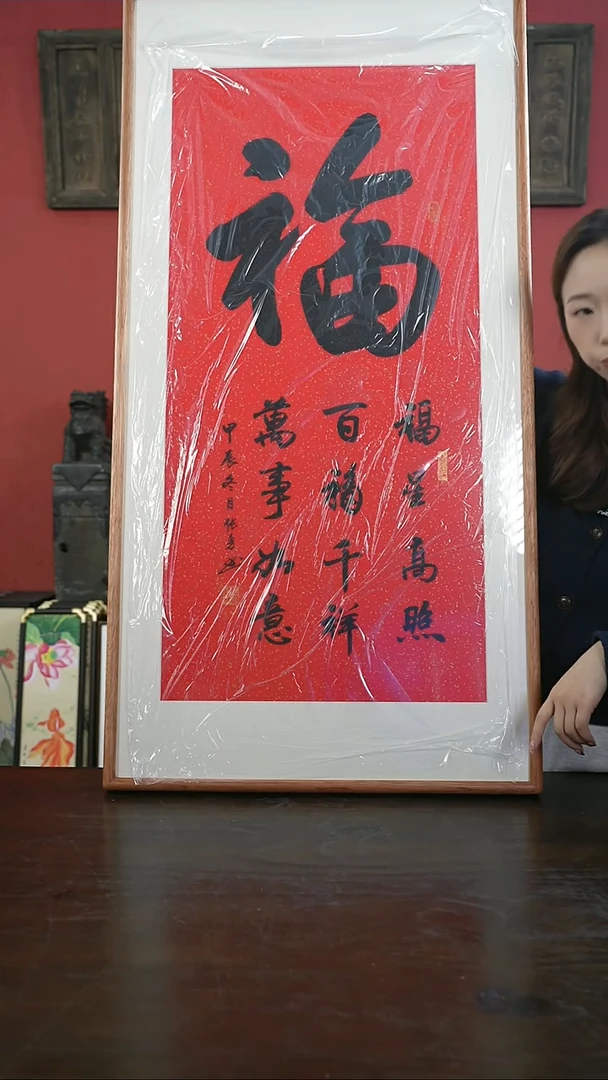 福
福星高照
百福千祥
萬事如意
甲辰冬月